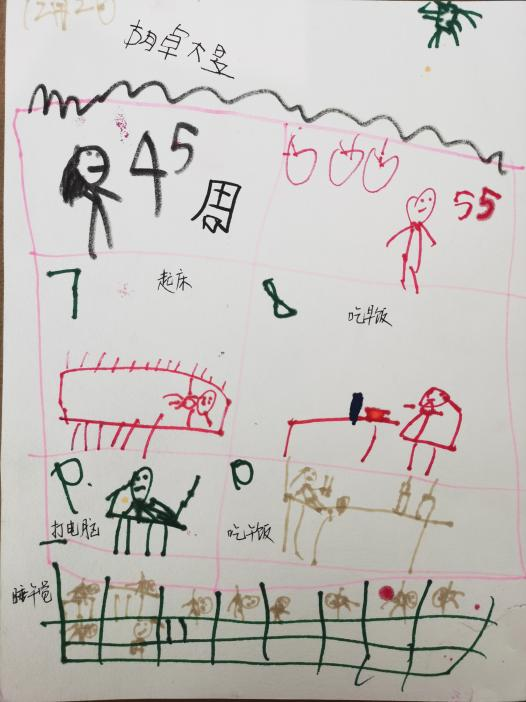 胡卓大昱
45
周
55
7
起床
8
吃早饭
P.
打电脑
P
吃午饭
睡午觉
11